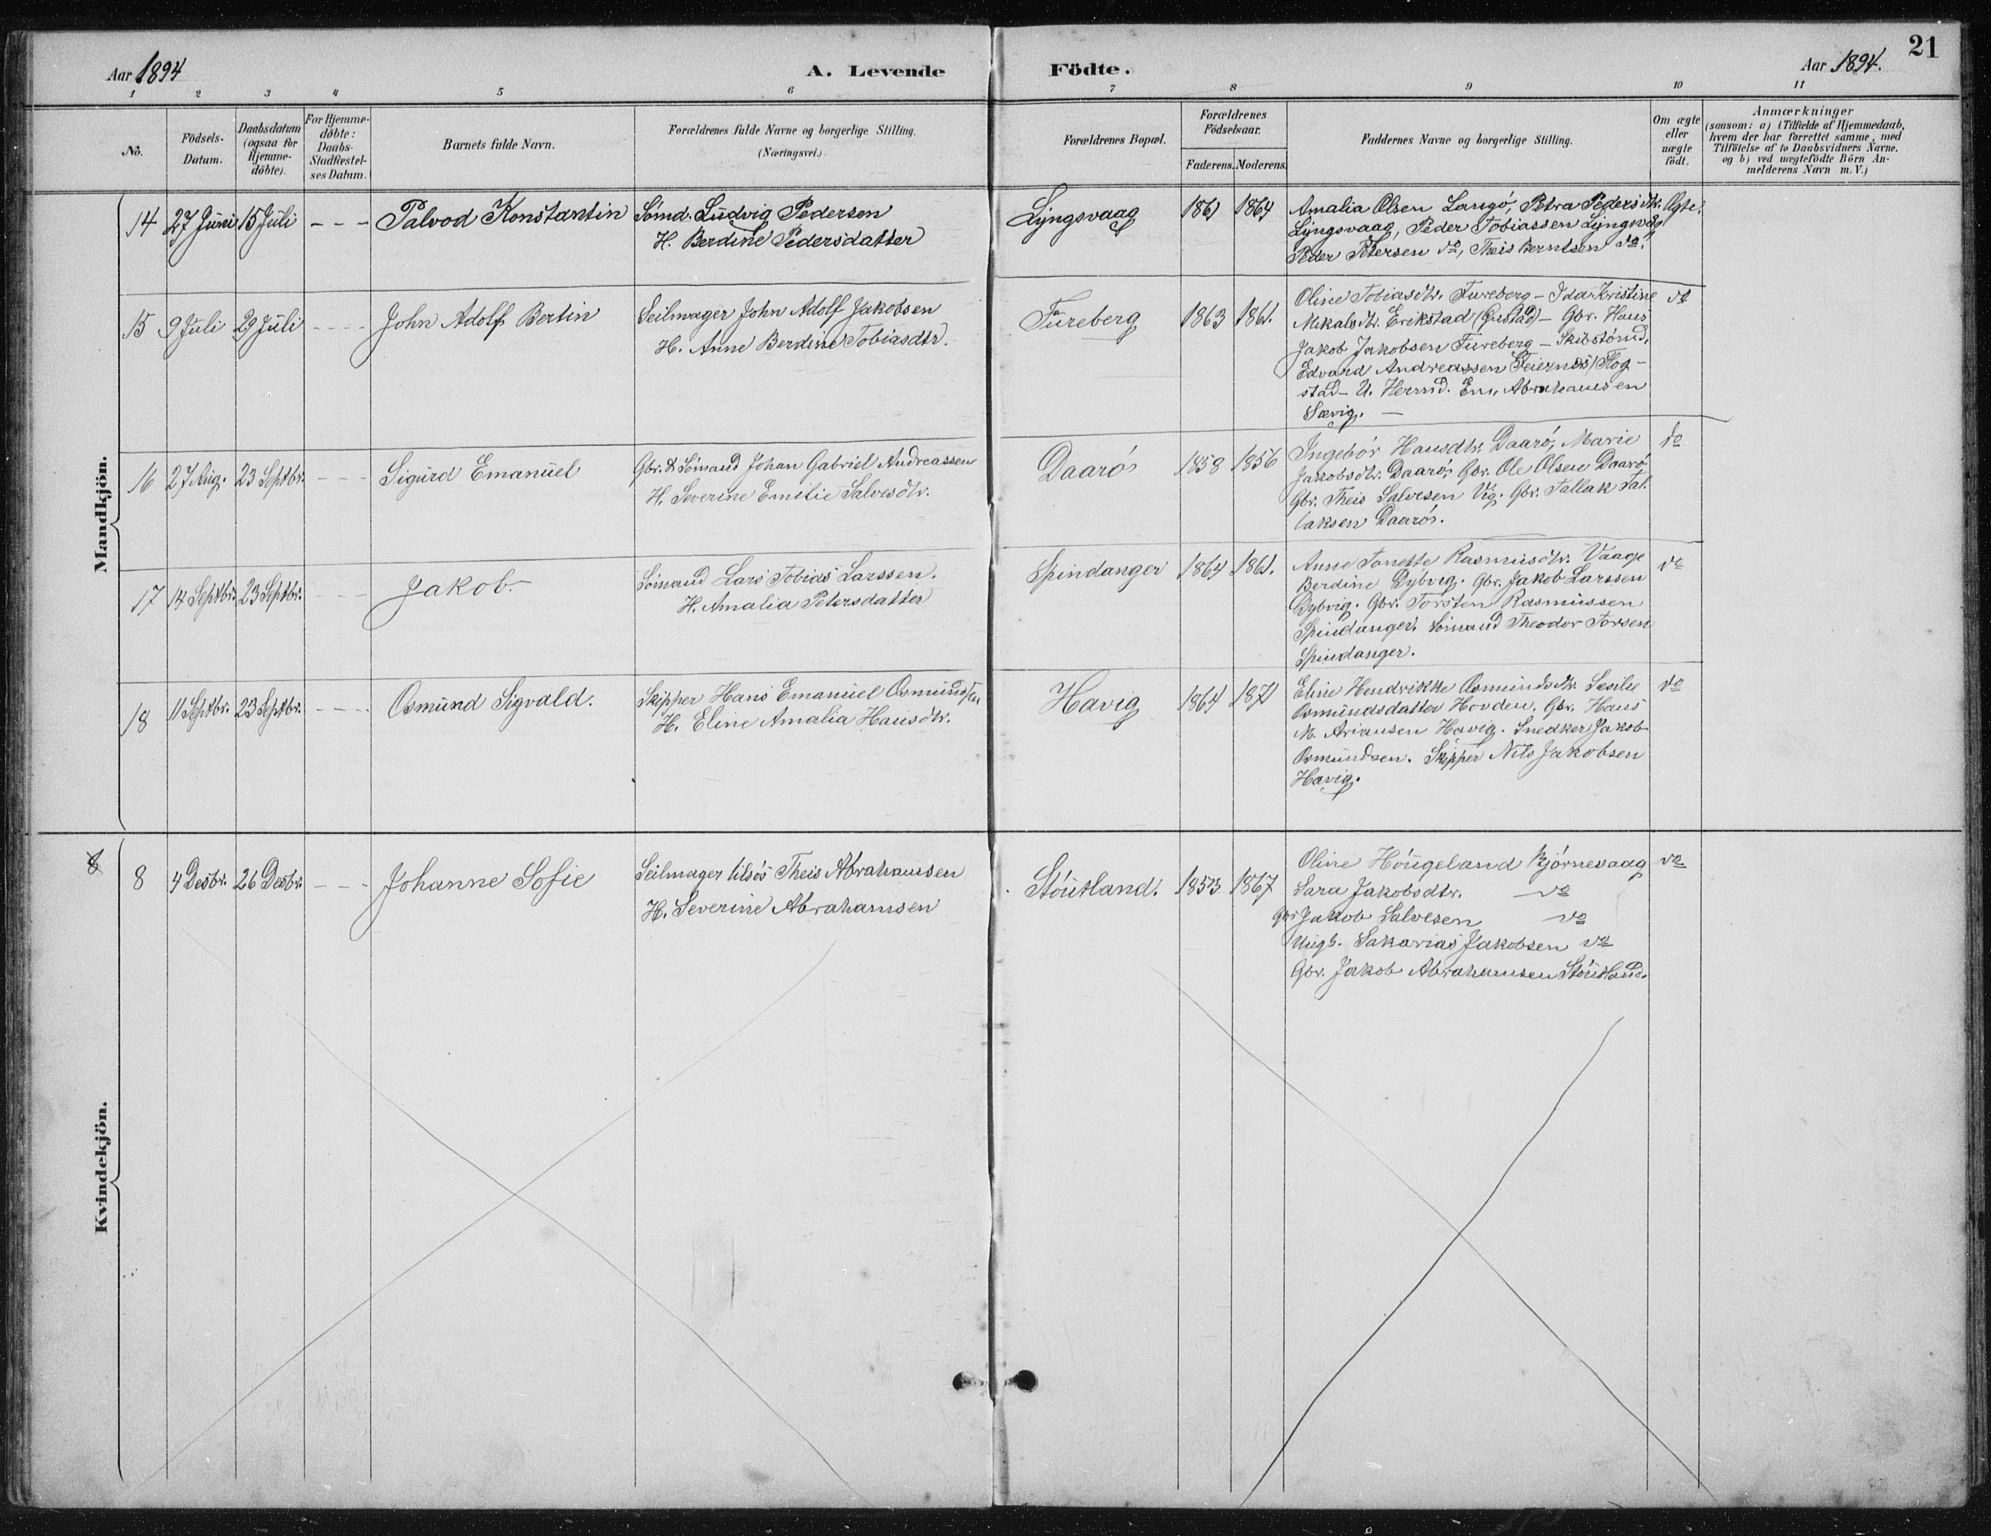 Aar 1894
A. Levende
Födte.
Aar 1894.
21
1 2 3 4 5 6 7 8 9 10 11
No.
Födsels-
Datum.
Daabsdatum
(ogsaa for
Hjemme-
döbte).
For Hjemme-
döbte:
Daabs-
Stadfæstel-
ses Datum.
Barnets fulde Navn.
Forældrenes fulde Navne og borgerlige Stilling.
(Næringsvei.)
Forældrenes Bopæl.
Forældrenes
Födselsaar.
Faderens. Moderens.
Faddernes Navne og borgerlige Stilling.
Om ægte
eller
uægte
födt.
Anmærkninger
(saasom: a) i Tilfælde af Hjemmedaab,
hvem der har forrettet samme, med
Tilföielse af to Daabsvidners Navne.
og b) ved uægtefödte Börn An-
melderens Navn m. V.)
Mandkjön.
14 27 Juni 15 Juli - - - Palvod Konstantin
Sömd. Ludvig Pedersen
H. Berdine Pedersdatter
Lyngsvaag 1861 1864
Amalia Olsen Langö, Petra Pedersdtr.
Lyngsvaag, Peder Tobiassen Lyngsvåg
Peder Petersen do, Theis Berntsen do.
Ægte.
15 9 Juli 29 Juli - - - - John Adolf Bertin
Seilmager John Adolf Jakobsen
H. Anne Berdine Tobiasdtr.
Fureberg 1863 1861.
Oline Tobiasdtr. Fureberg – Ida Kristine
Mikalsdtr. Erikstad (Gustad) – Gbr. Hans
Jakob Jakobsen Fureberg – Skibstömd.
Edvard Andreassen Feiernes/Flog-
stad – U. Herred. Em. Abrahamsen
Sævig. —
do
16 27 Aug. 23 Septbr. - - - Sigurd Emanuel
Gbr. & Sömand Johan Gabriel Andreassen
H. Severine Emilie Salvesdtr.
Daarö 1858 1856
Ingebor Hansdtr. Daarö, Marie
Jakobsdtr. Daarö, Gbr. Ole Olsen Daarö
Gbr. Theis Salvesen Vig. Gbr. Tallak Tal-
laksen Daarö.
do
17 14 Septbr. 23 Septbr. - - - Jakob
Sömand Lars Tobias Larssen.
H. Amalia Petersdatter
Spindanger 1864 1861.
Anne Tonette Rasmusdtr. Vaage
Berdine Dybvig. Gbr. Jakob Larssen
Dybvig. Gbr. Torsten Rasmussen
Spindanger. Sömand Theodor Torsen
Spindanger.
do
18 11 Septbr. 23 Septbr. - - - - Osmund Sigvald.
Skipper Hans Emanuel Osmundsen
H. Eline Amalia Hansdtr.
Havig 1864 1871
Eline Hendrikke Osmundsdtr. Sesilie
Osmundsdatter Hovden. Gbr. Hans
M. Ariansen Havig. Snedker Jakob
Osmundsen. Skipper Nils Jakobsen
Havig.
do
Kvindekjön.
8
8 4 Desbr. 26 Desbr. - - - Johanne Sofie
Seilmager tilsös Theis Abrahamsen
H. Severine Abrahamsen
Stöutland. 1853 1867
Oline Höugeland Bjørnevaag
Sara Jakobsdtr. — do
Gbr Jakob Salvesen do
Ungk. Sakarias Jakobsen do
Gbr. Jakob Abrahamsen Stöutland.
do